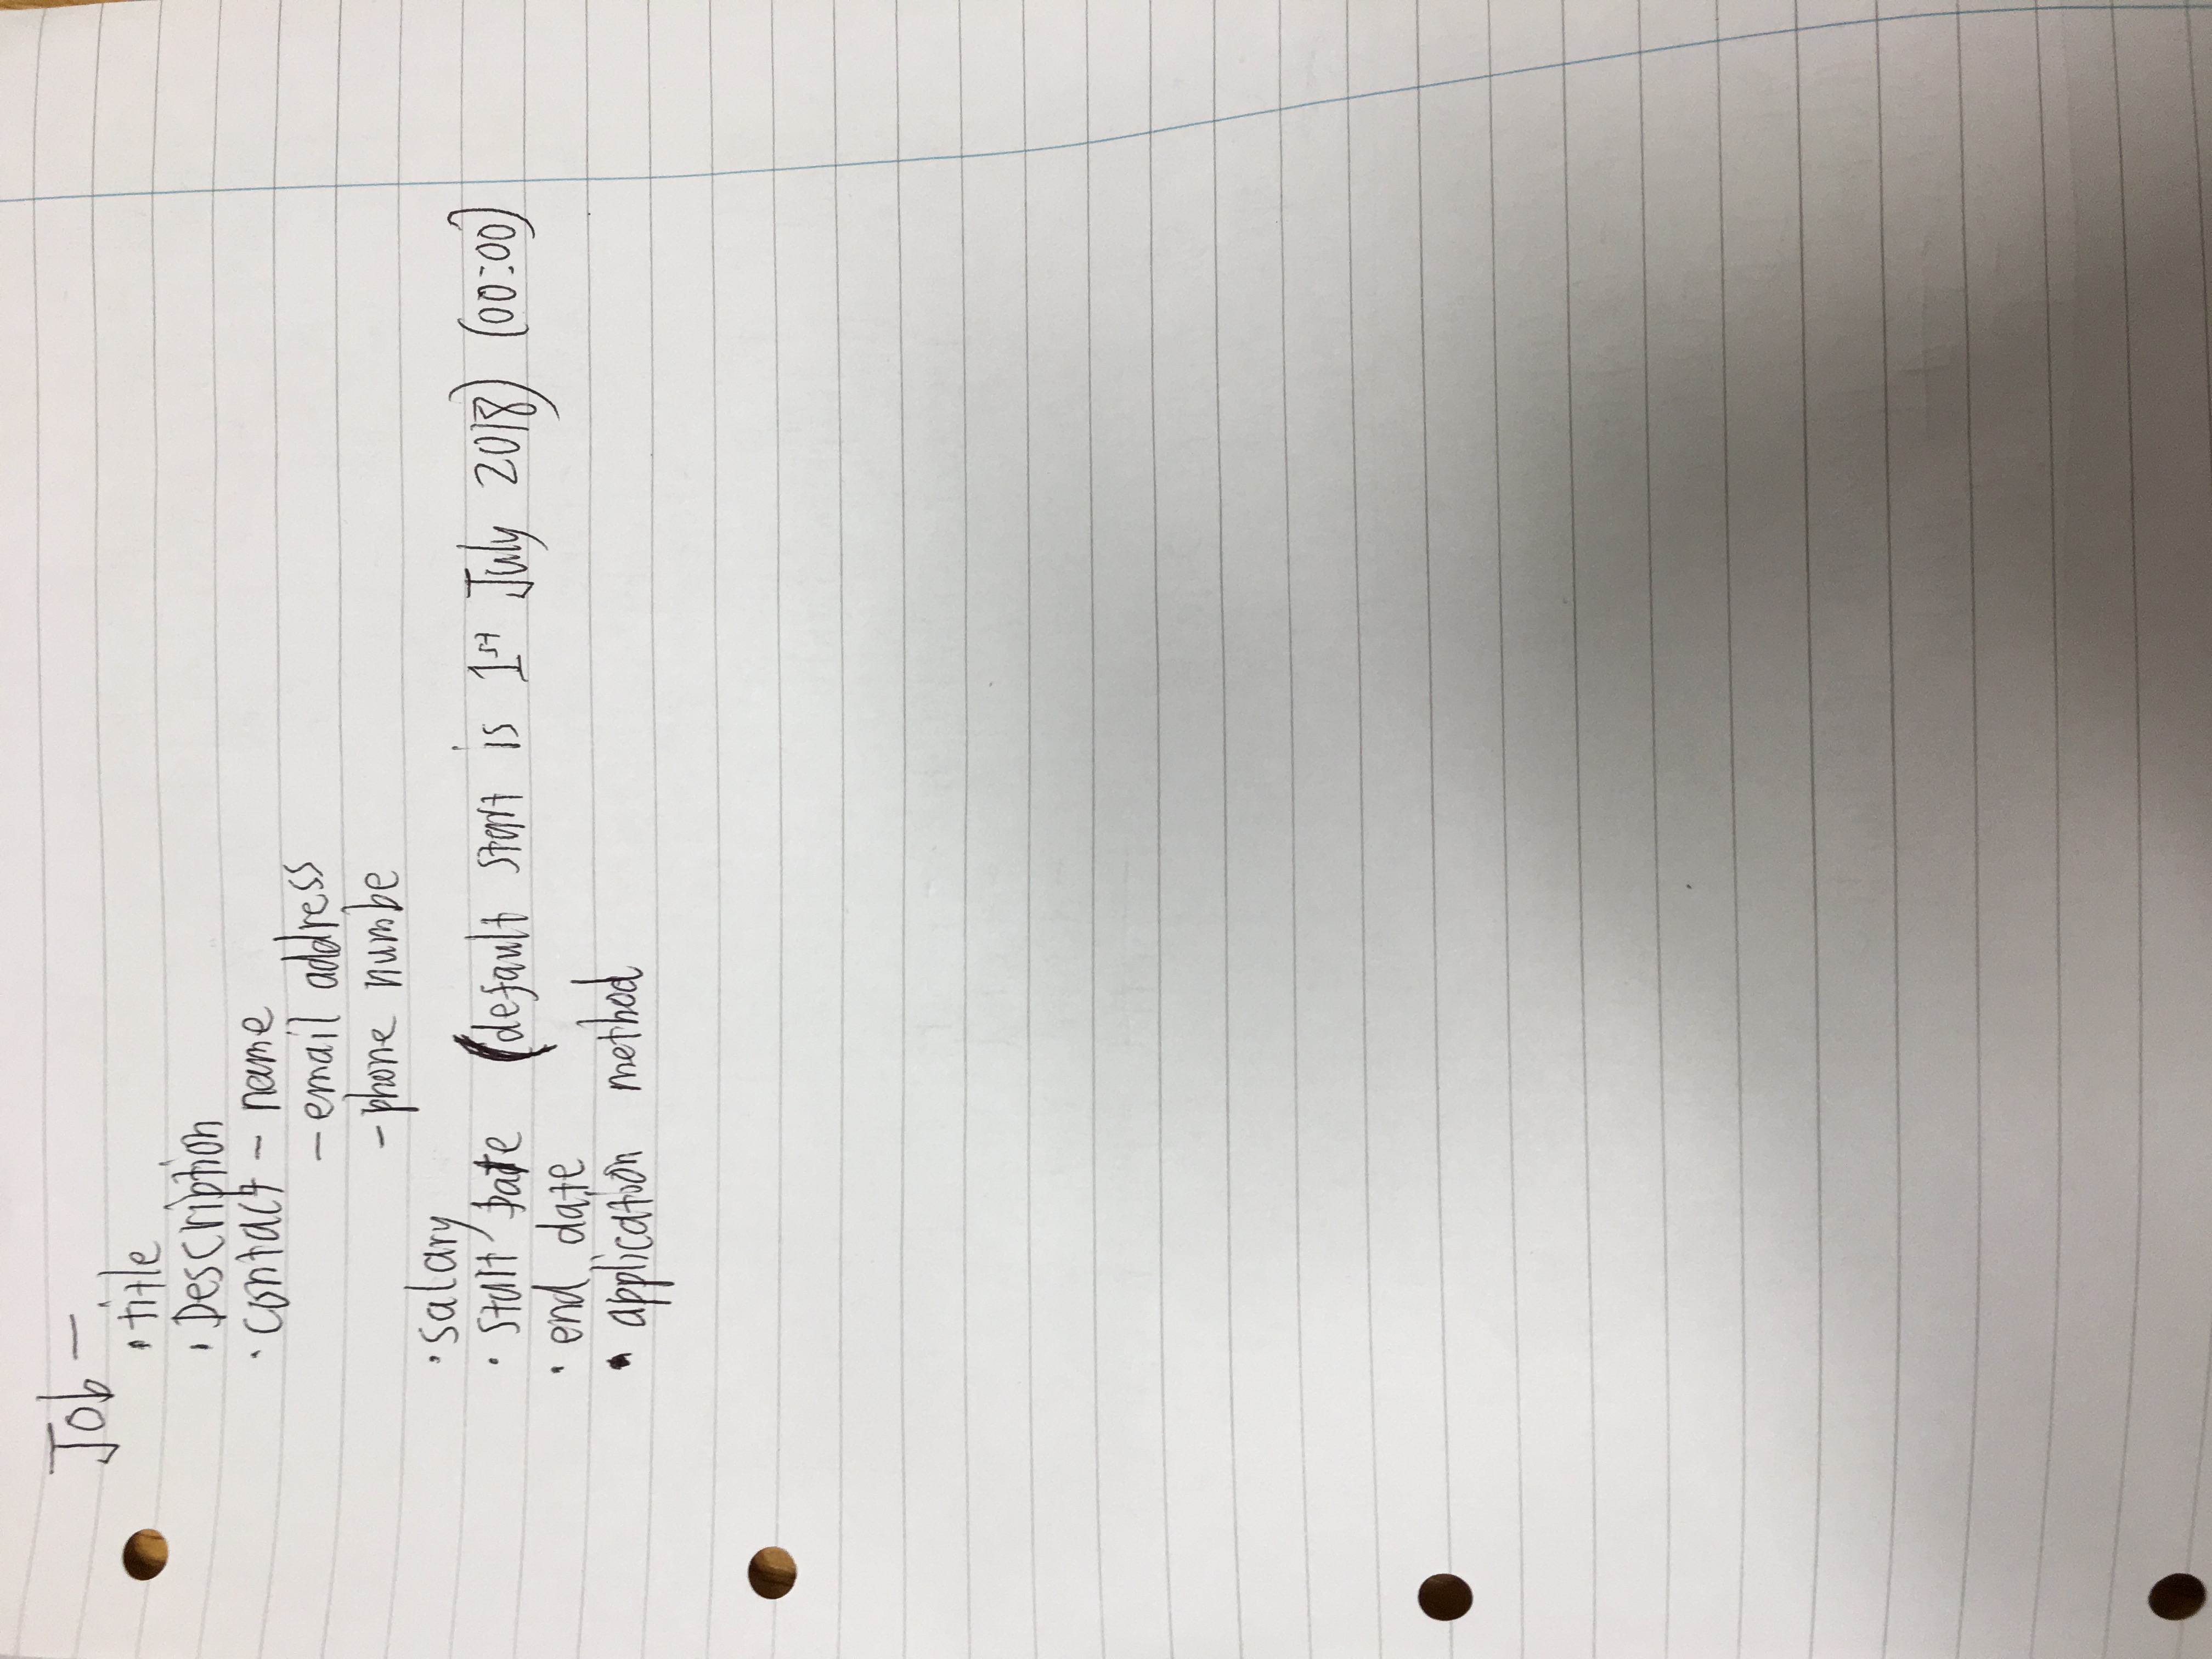 Job -
• title
• Description
• contact - name
- email address
- phone numbe
• salary
• start Date (default start is 1st July 2018) (00:00)
• end date
• application method